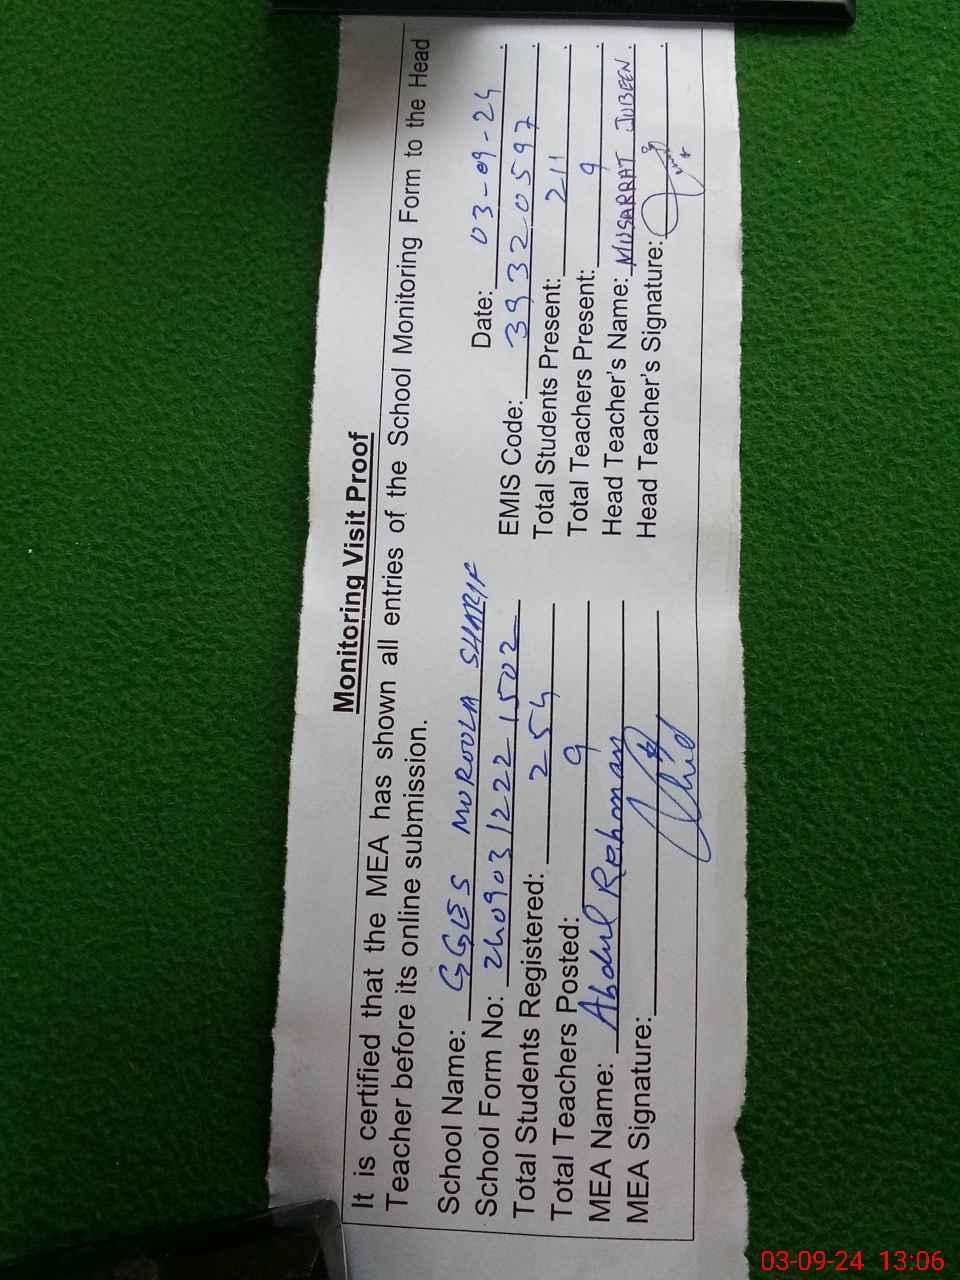 Monitoring Visit Proof
It is certified that the MEA has shown all entries of the School Monitoring Form to the Head
Teacher before its online submission.
School Name: GGES MUROOLA SHARIF Date: 03-09-24
School Form No: 2409031222 1502 EMIS Code: 39320597
Total Students Registered: 254 Total Students Present: 211
Total Teachers Posted: 9 Total Teachers Present: 9
MEA Name: Abdul Rehman Head Teacher's Name: MUSARRAT JUBEEN
MEA Signature: Head Teacher's Signature:
03-09-24 13:06